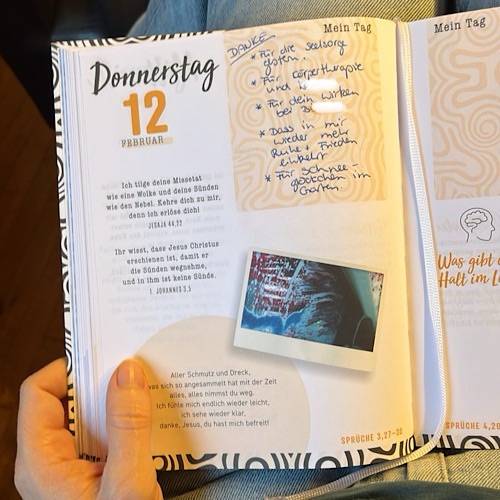 Mein Tag
Donnerstag
12
FEBRUAR
DANKE
* Für die Seelsorge
gestern.
* Für Körpertherapie
und
* Für dein Wirken
bei
* Dass in mir
wieder mehr
Ruhe + Frieden
einkehrt
* Für Schnee-
glöckchen im
Garten.
Ich tilge deine Missetat
wie eine Wolke und deine Sünden
wie den Nebel. Kehre dich zu mir,
denn ich erlöse dich!
JESAJA 44,22
Ihr wisst, dass Jesus Christus
erschienen ist, damit er
die Sünden wegnehme,
und in ihm ist keine Sünde.
1. JOHANNES 3,5
Aller Schmutz und Dreck,
was sich so angesammelt hat mit der Zeit
alles, alles nimmst du weg.
Ich fühle mich endlich wieder leicht,
ich sehe wieder klar,
danke, Jesus, du hast mich befreit!
SPRÜCHE 3,27-
Mein Tag
Was gibt
Halt im
SPRÜCHE 4,20